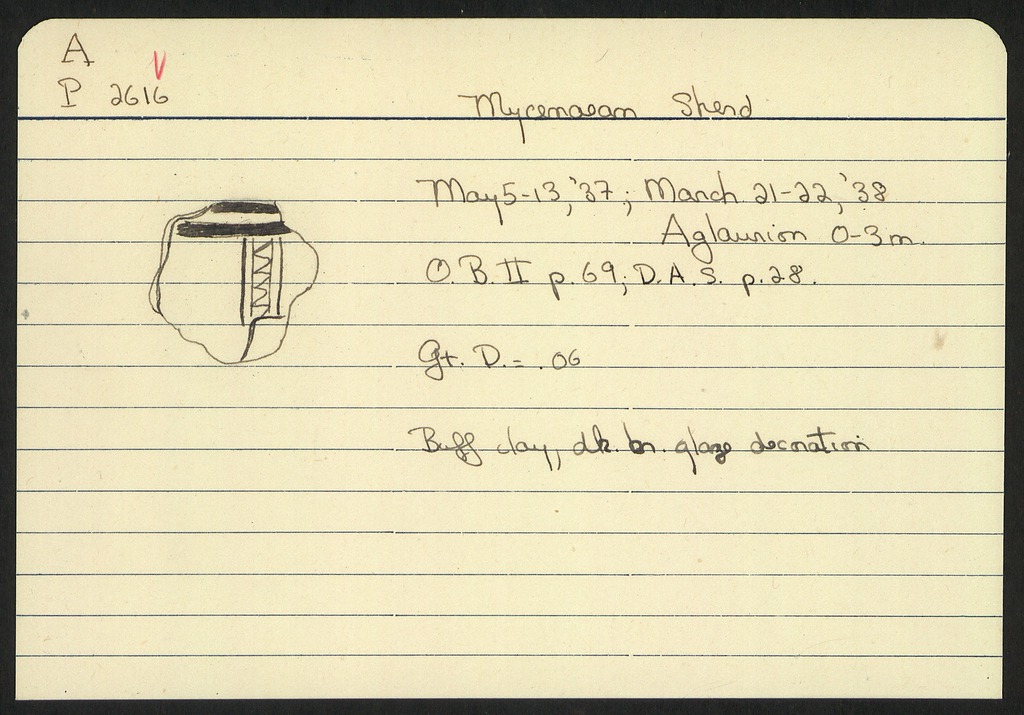 A
P 2616
Mycenaean Sherd
May 5-13, '37; March 21-22, '38
Aglaurion 0-3 m.
O.B. II p. 69; D.A.S. p. 28.
Gr. D. = .06
Buff clay, dk. br. glaze decoration